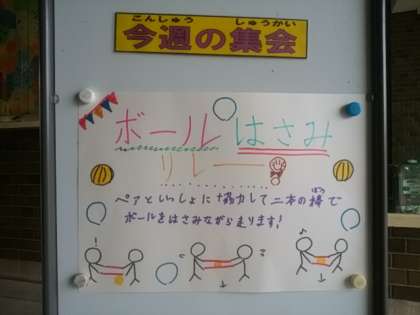 こんしゅう しゅうかい
今週の集会
ボールはさみ
リレー
ペアといっしょに協力して二本の棒で
ぼう
ボールをはさみながら走ります!